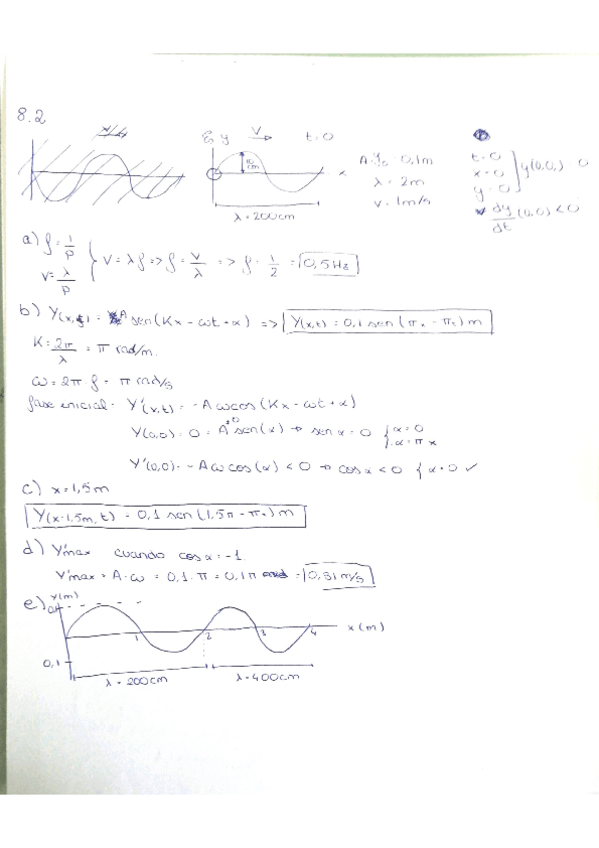 8.2
y v t=0
10 cm
x
λ = 200cm
A=y₀ 0,1m
λ = 2m
v = 1m/s
t=0
x=0
y=0
y(0,0) = 0
dy/dt (0,0) < 0
a) f = 1/P
v = λ/P
v = λf => f = v/λ => f = 1/2 = 0,5 Hz
b) Y(x,t) = A sen(Kx - ωt + α) => Y(x,t) = 0,1 sen(πx - πt) m
K = 2π/λ = π rad/m.
ω = 2π·f = π rad/s
fase inicial = Y'(x,t) = -Aωcos(Kx - ωt + α)
Y(0,0) = 0 = A sen(α) → sen α = 0 { α=0 α=π x
Y'(0,0) = -Aωcos(α) < 0 → cos α < 0 { α=0 ✓
c) x = 1,5m
Y(x=1,5m, t) = 0,1 sen(1,5π - πt) m
d) Y'max cuando cos α = -1.
Y'max = A·ω = 0,1·π = 0,1π = 0,31 m/s
e) y(m)
0,1
1 2 3 4 x(m)
0,1
λ = 200cm λ = 400cm